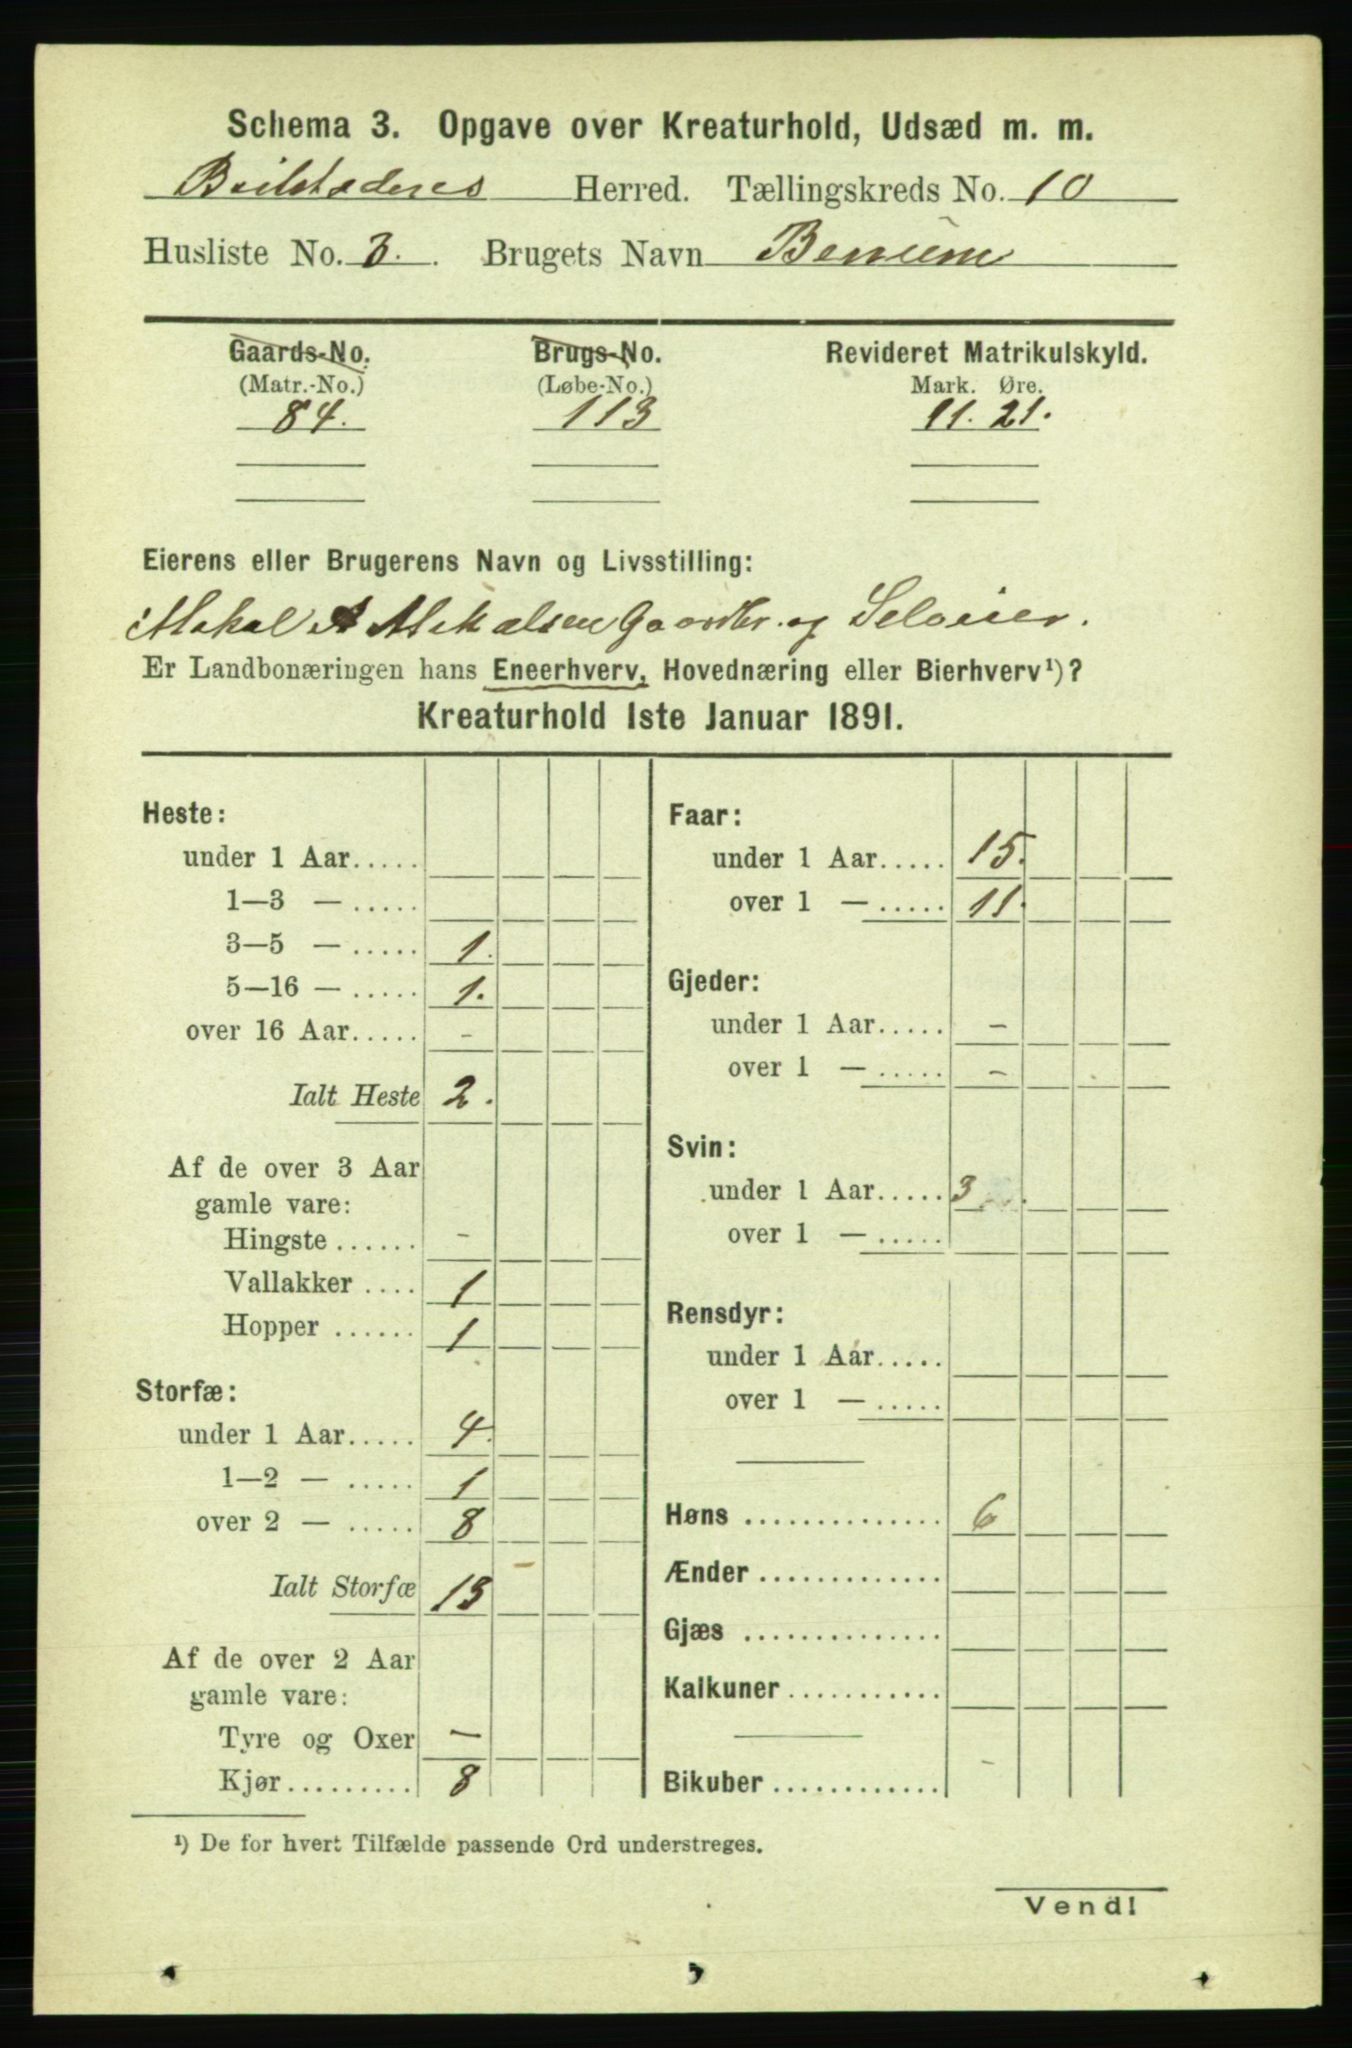 Schema 3. Opgave over Kreaturhold, Udsæd m. m.
Beitstadens Herred. Tællingskreds No. 10
Husliste No. 3. Brugets Navn Benum
Gaards-No. Brugs-No. Revideret Matrikulskyld.
(Matr.-No.) (Løbe-No.) Mark. Øre.
84. 113 11. 21.
Eierens eller Brugerens Navn og Livsstilling:
Mikal A Mikalsen Gaardbr. og Seleier.
Er Landbonæringen hans Eneerhverv, Hovednæring eller Bierhverv¹)?
Kreaturhold 1ste Januar 1891.
Heste:
under 1 Aar.....
1—3 — .....
3—5 — ..... 1.
5—16 — ..... 1.
over 16 Aar..... -
Ialt Heste 2.
Af de over 3 Aar
gamle vare:
Hingste ...... -
Vallakker .... 1
Hopper ...... 1
Storfæ:
under 1 Aar..... 4.
1—2 — ..... 1
over 2 — ..... 8
Ialt Storfæ 13
Af de over 2 Aar
gamle vare:
Tyre og Oxer —
Kjør......... 8
Faar:
under 1 Aar..... 15.
over 1 — ..... 11.
Gjeder:
under 1 Aar..... -
over 1 — ..... -
Svin:
under 1 Aar..... 3
over 1 — .....
Rensdyr:
under 1 Aar.....
over 1 — .....
Høns .............. 6
Ænder .............
Gjæs ..............
Kalkuner...........
Bikuber ............ -
¹) De for hvert Tilfælde passende Ord understreges.
Vend!